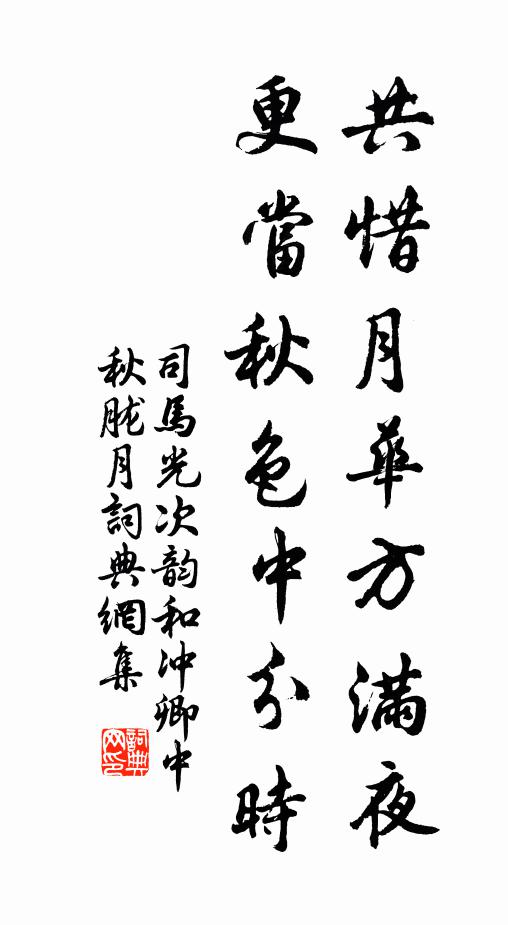 共惜月華方滿夜
更當秋色中分時
司馬光次韵和冲卿中
秋胧月詞典網集
詞典网印